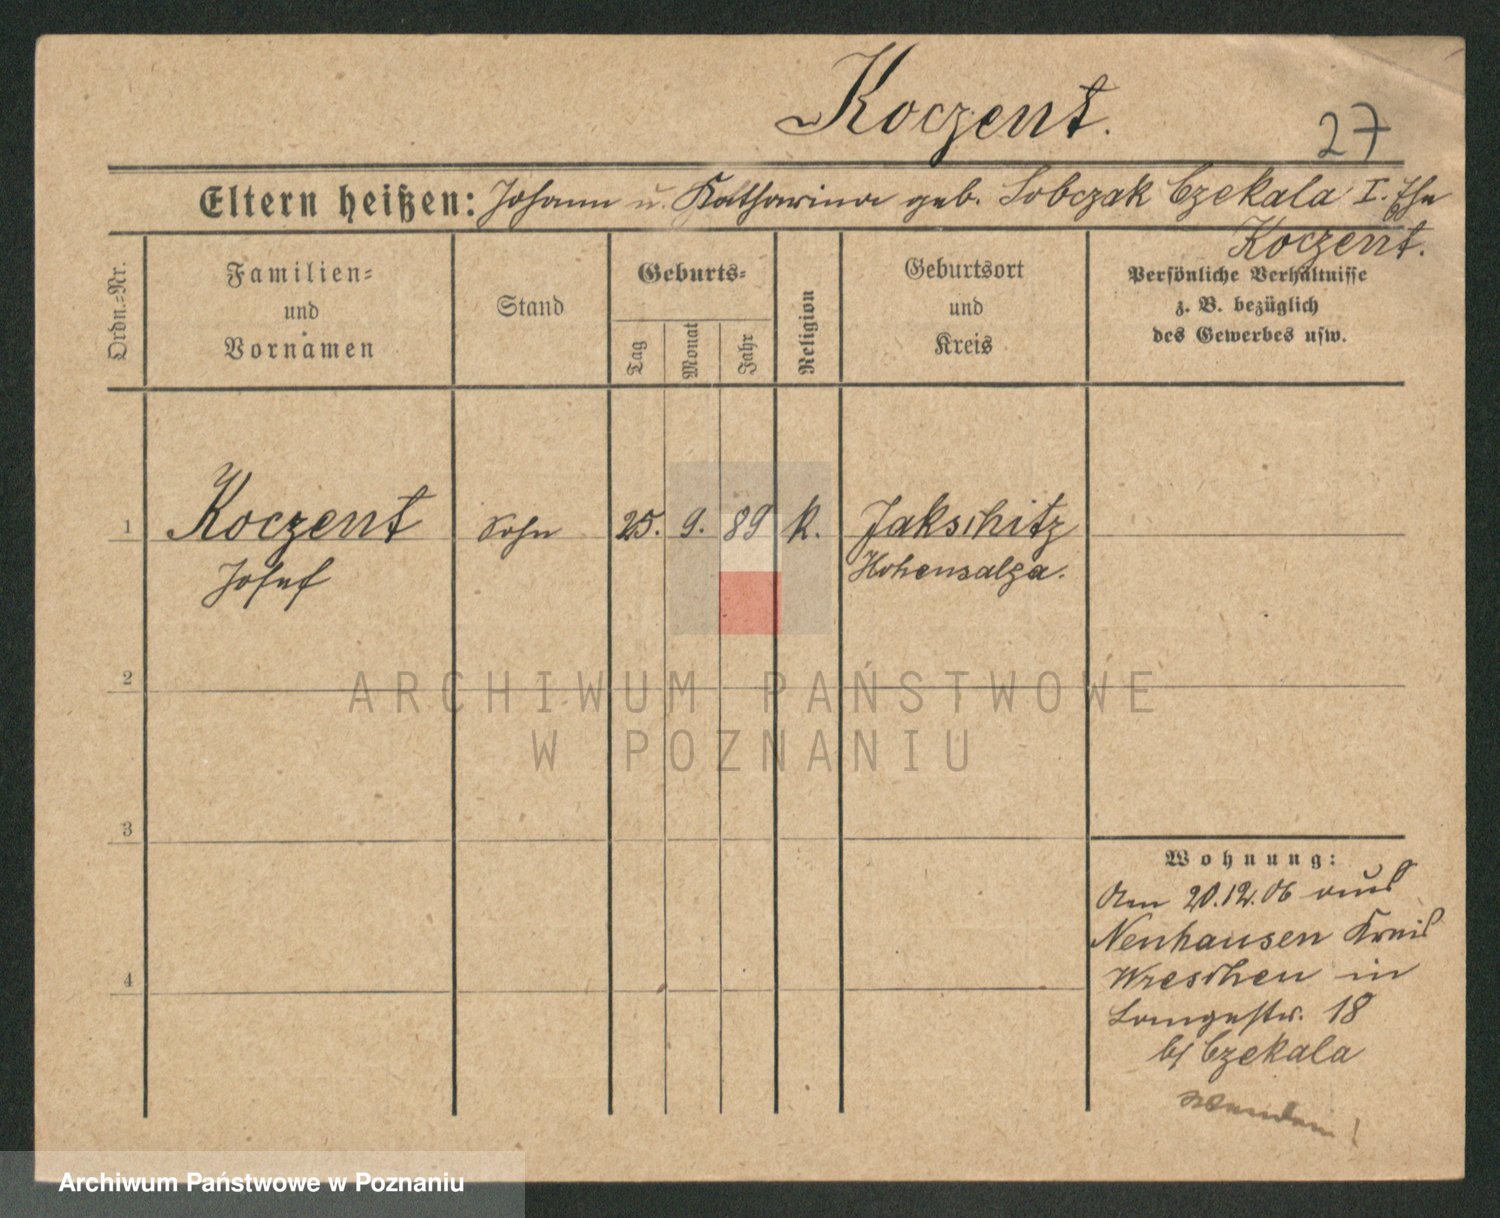 Koczent.
27
Eltern heißen: Johann u. Katharina geb. Sobczak Czekala I. Ehe
Koczent.
Ordn.=Nr.
Familien=
und
Vornamen
Stand
Geburts=
Tag
Monat
Jahr
Religion
Geburtsort
und
Kreis
Persönliche Verhältnisse
z. B. bezüglich
des Gewerbes usw.
1 Koczent Sohn 25. 9. 89 k. Jakschitz
Josef Hohensalza.
2
ARCHIWUM PAŃSTWOWE
W POZNANIU
3
Wohnung:
Am 20.12.06 aus
Neuhausen Kreis
4
Wreschen in
Langestr. 18
b/ Czekala
Wenden!
Archiwum Państwowe w Poznaniu